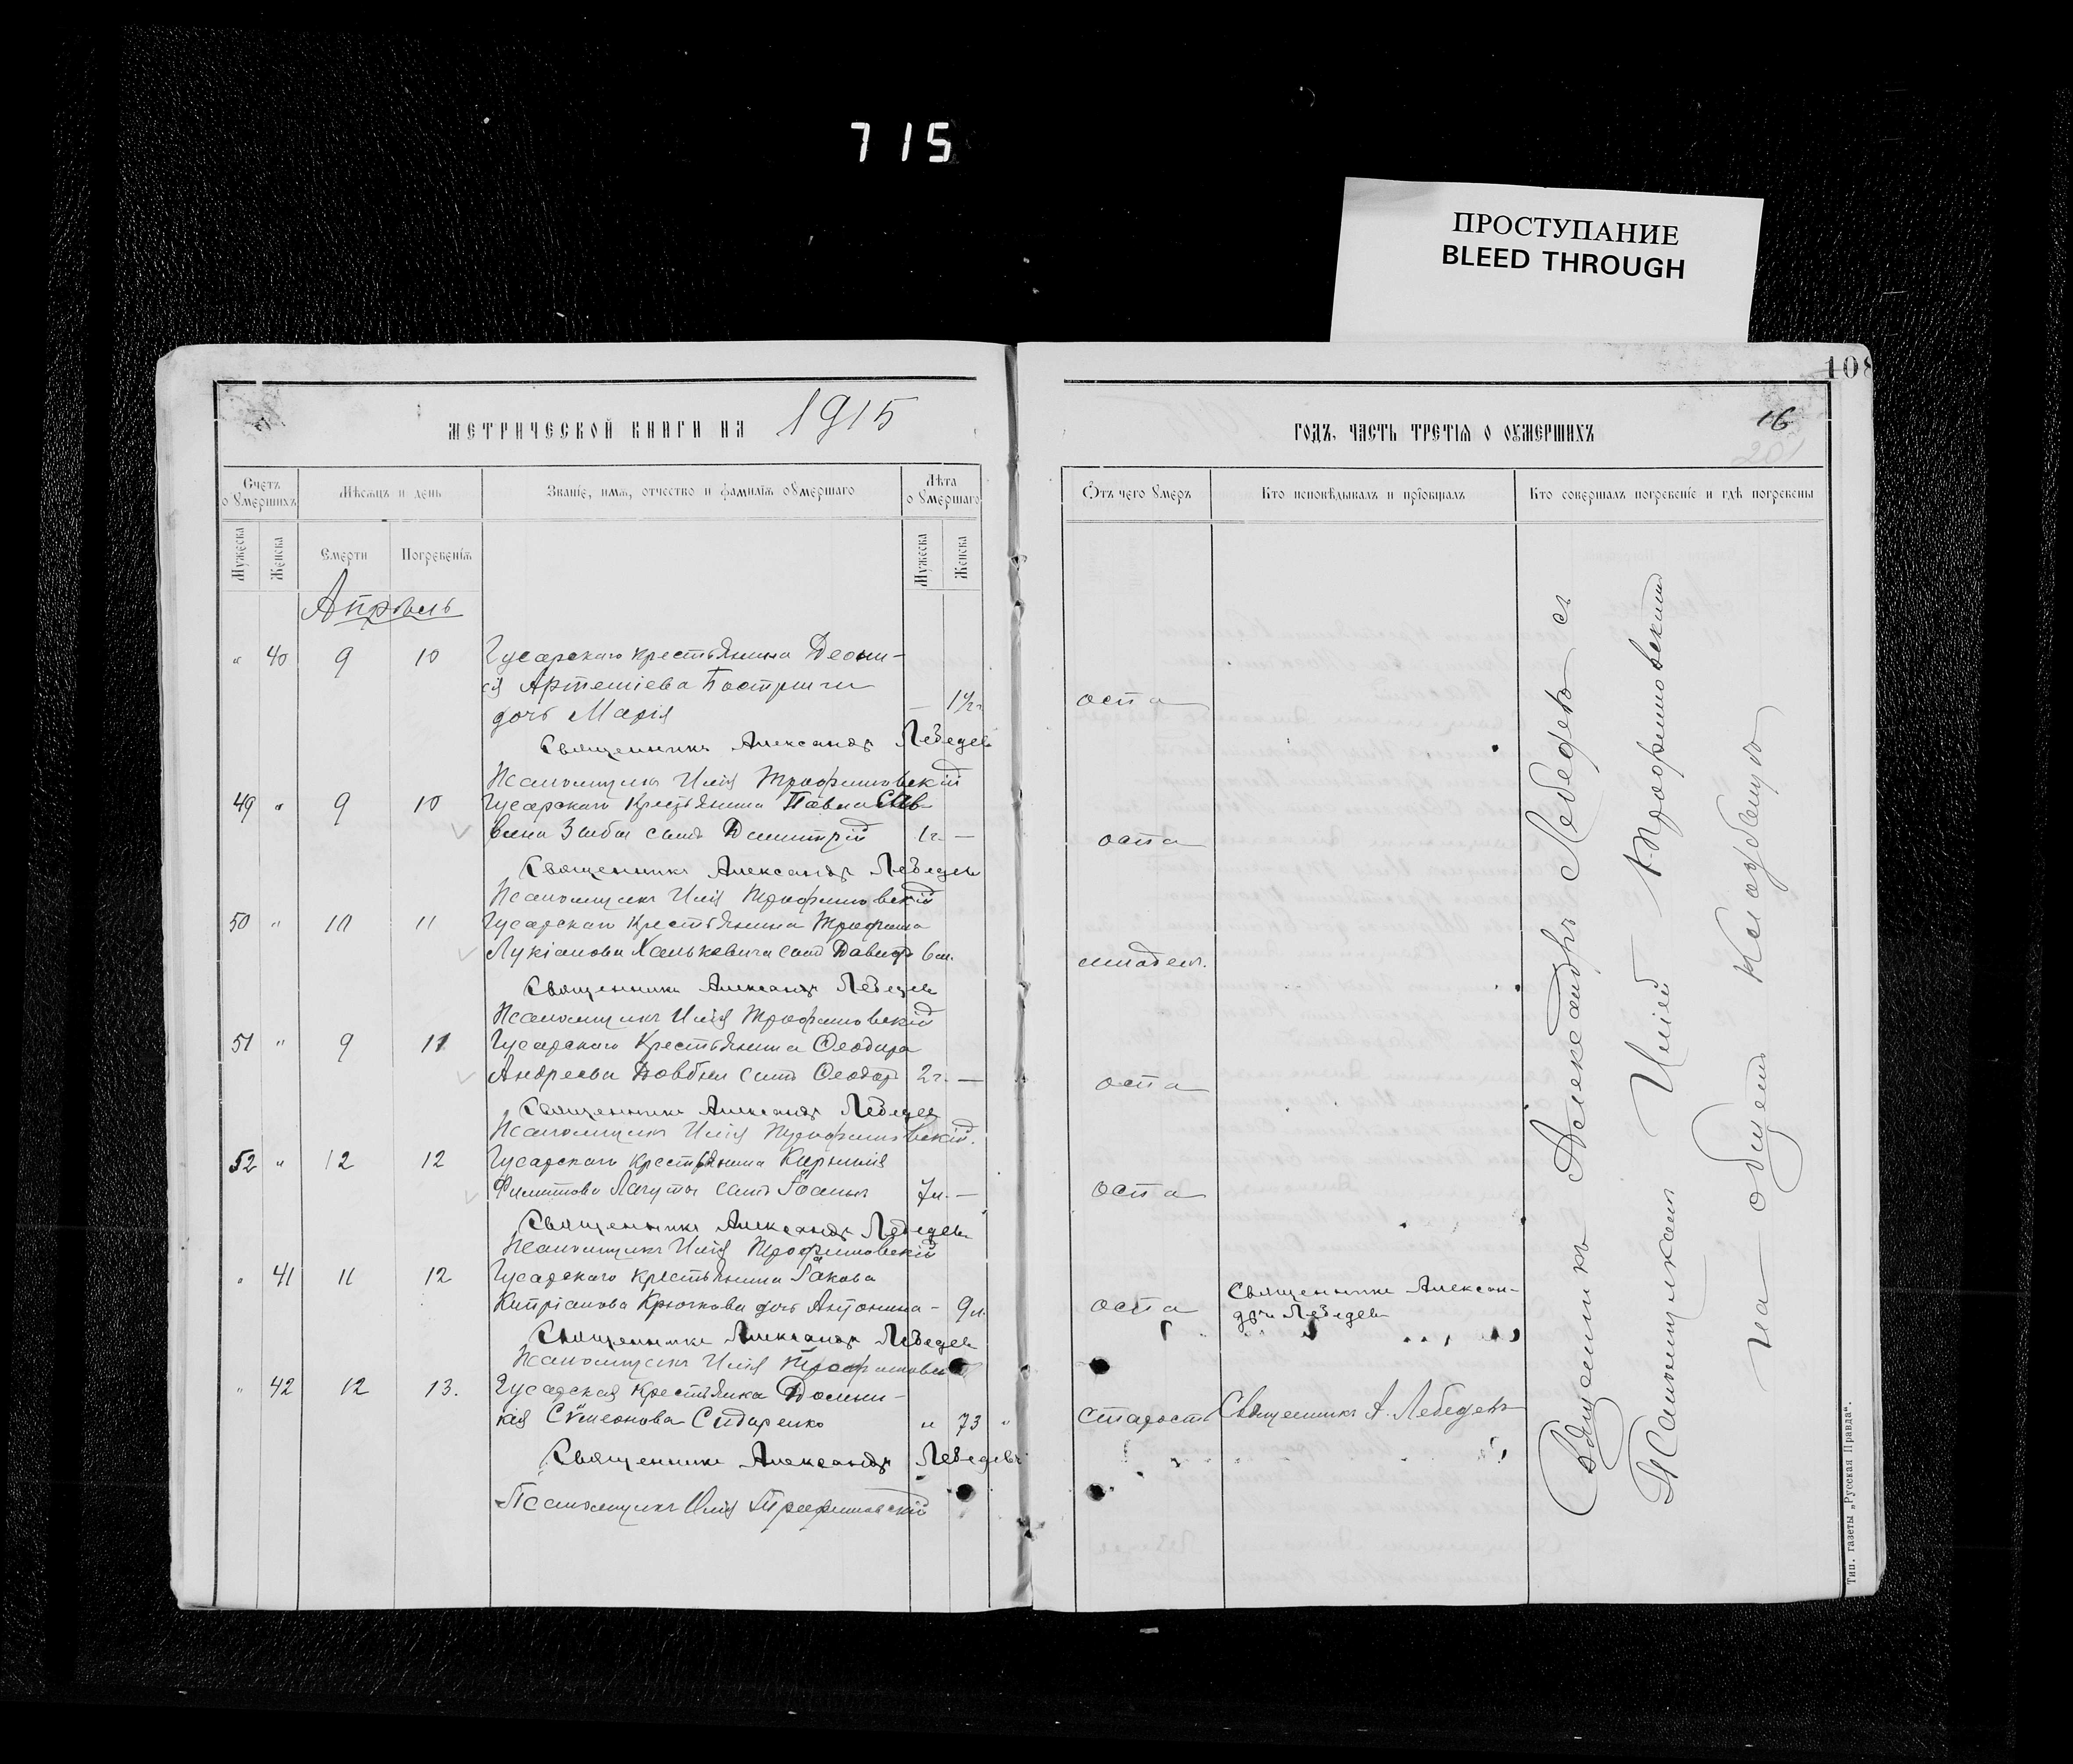 715
ПРОСТУПАНИЕ
BLEED THROUGH
108
МЕТРИЧЕСКОЙ КНИГИ НА 1915
ГОДЪ, ЧАСТЬ ТРЕТІѦ О ОУМЕРШИХЪ
16
201
Счетъ о Умершихъ
Мѣсяцъ и день
Званіе, имя, отчество и фамилія оумершаго
Лѣта о Умершаго
Отъ чего Умеръ
Кто исповѣдывалъ и пріобщалъ
Кто совершалъ погребеніе и гдѣ погребены
Мужеска
Женска
Смерти
Погребенія
Мужеска
Женска
Апрѣль
" 40 9 10 Гусарскаго крестьянина Деони-
сія Артеміева
дочь Марія — 1½ г. оспа
Священникъ Александръ Лебедевъ
Псаломщикъ Илія Трофимовскій
49 " 9 10 Гусарскаго крестьянина Павла Сав-
вина сынъ Димитрій 1 г. — оспа
Священникъ Александръ Лебедевъ
Псаломщикъ Илія Трофимовскій
50 " 10 11 Гусарскаго крестьянина Трофима
Лукіанова Халькевича сынъ Давидъ 6 м. младен.
Священникъ Александръ Лебедевъ
Псаломщикъ Илія Трофимовскій
51 " 9 11 Гусарскаго крестьянина Ѳеодора
Андреева Довбни сынъ Ѳеодоръ 2 г. — оспа
Священникъ Александръ Лебедевъ
Псаломщикъ Илія Трофимовскій.
52 " 12 12 Гусарскаго крестьянина Кирилла
Филиппова Лагуты сынъ Іоаннъ 7 м. — оспа
Священникъ Александръ Лебедевъ
Псаломщикъ Илія Трофимовскій
" 41 11 12 Гусарскаго крестьянина Іакова
Кипріанова Крючкова дочь Антонина - 9 л. оспа
Священникъ Алексан-
дръ Лебедевъ
Священникъ Александръ Лебедевъ
Псаломщикъ Илія Трофимовскій
" 42 12 13. Гусарская крестьянка Домни-
кія Сѵмеонова Сидоренко " 73 " старость Священникъ А. Лебедевъ
Священникъ Александръ Лебедевъ
Псаломщикъ Илія Трофимовскій
Священникъ Александръ Лебедевъ съ
Псаломщикомъ Иліей Трофимовскимъ
на общемъ кладбищѣ
Тип. газеты „Русская Правда“.